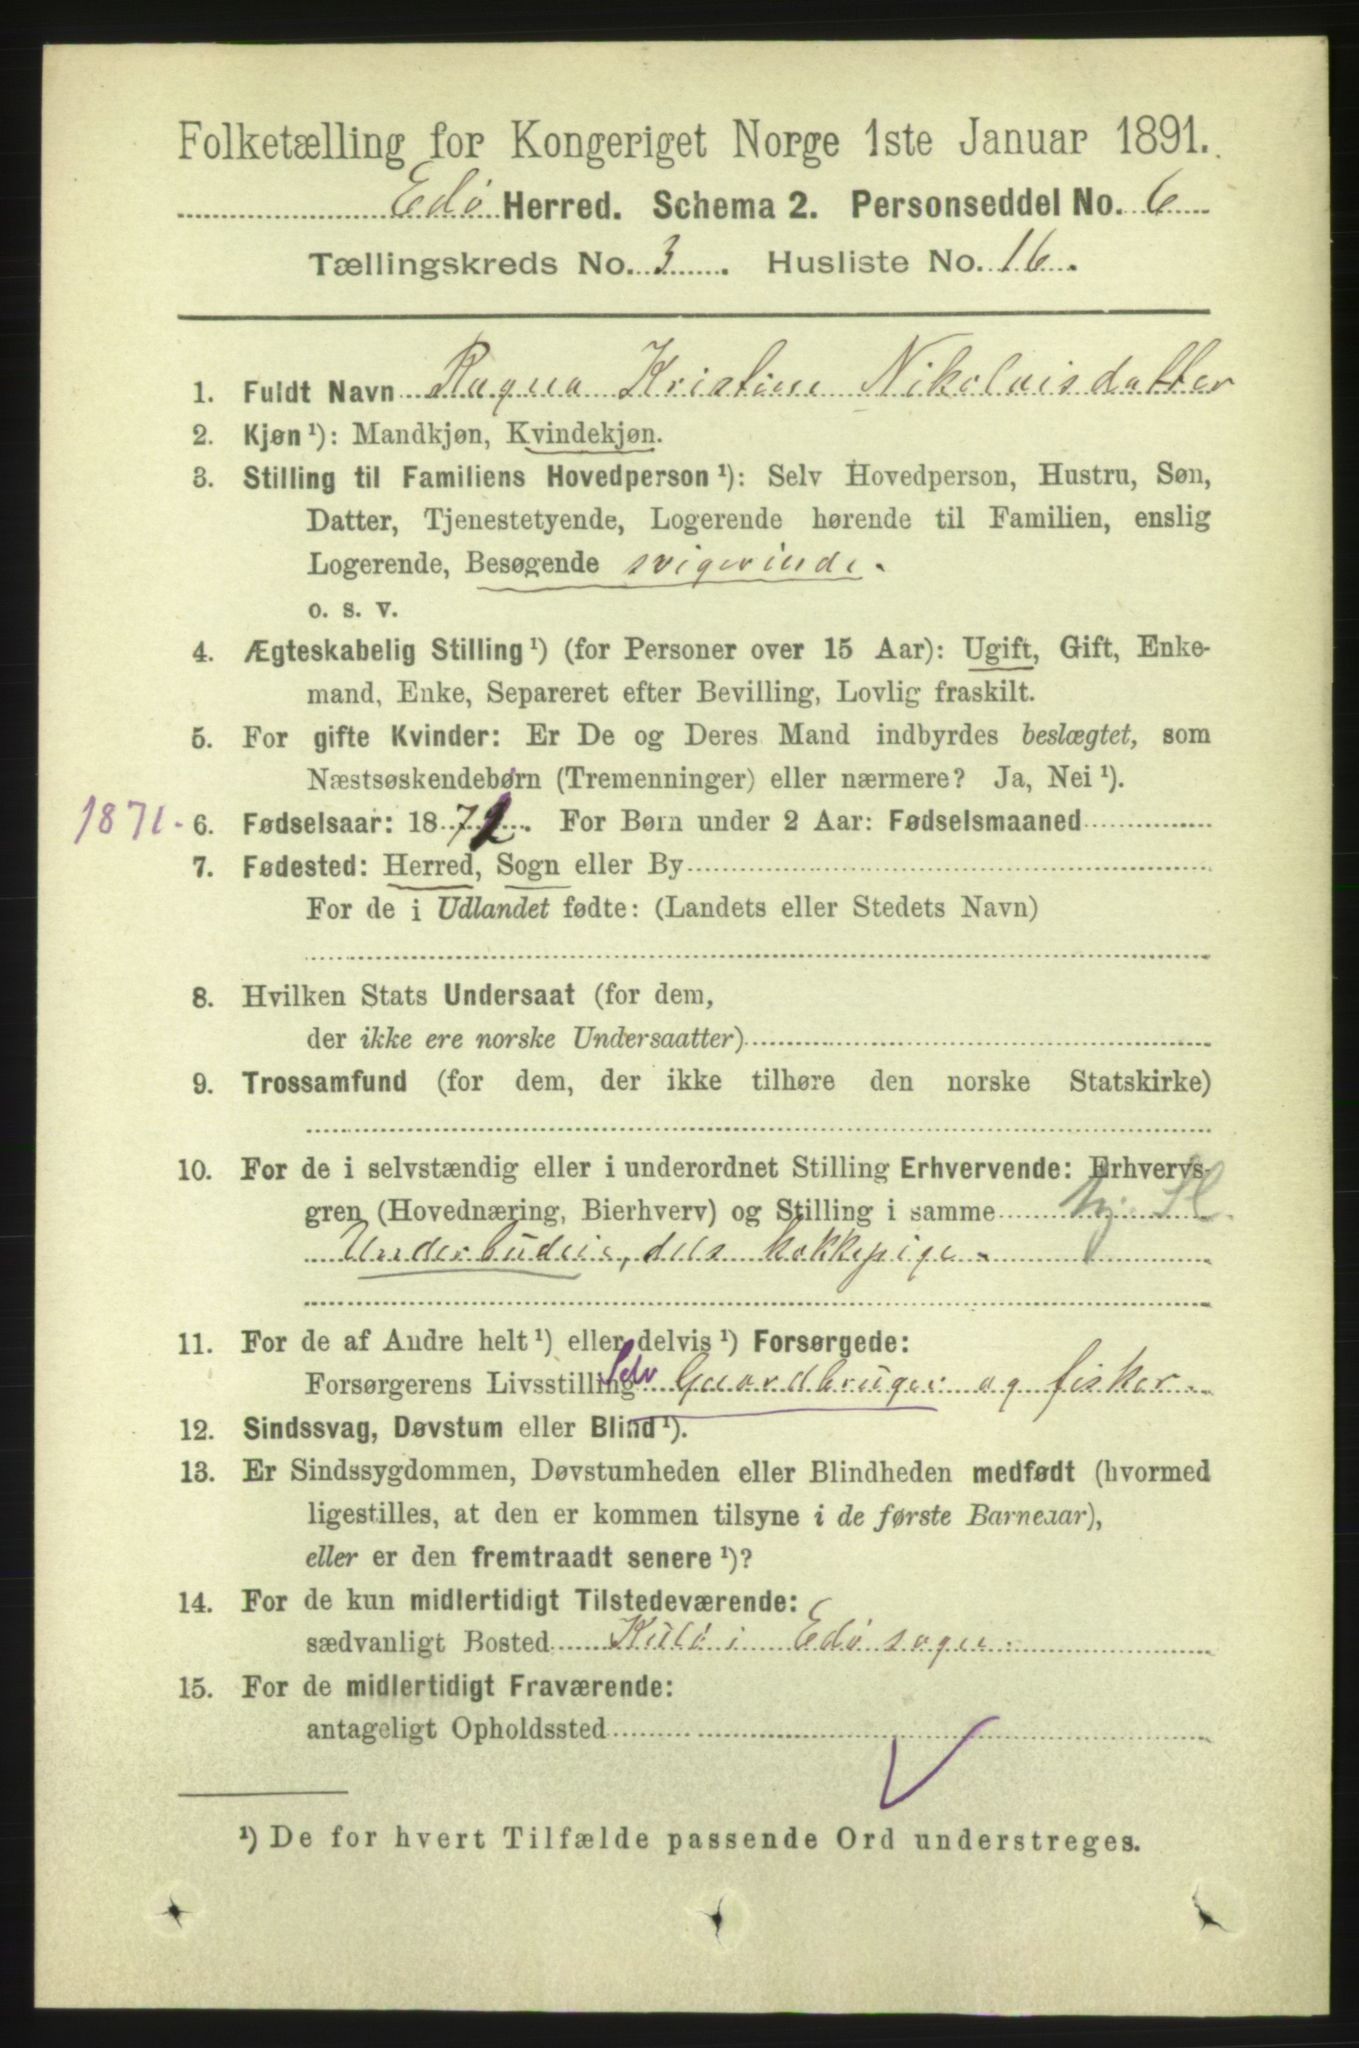 Folketælling for Kongeriget Norge 1ste Januar 1891.
Edø Herred. Schema 2. Personseddel No. 6
Tællingskreds No. 3. Husliste No. 16.
1. Fuldt Navn Ragna Kristine Nikolaisdatter
2. Kjøn¹): Mandkjøn, Kvindekjøn.
3. Stilling til Familiens Hovedperson¹): Selv Hovedperson, Hustru, Søn,
Datter, Tjenestetyende, Logerende hørende til Familien, enslig
Logerende, Besøgende svigerinde.
o. s. v.
4. Ægteskabelig Stilling¹) (for Personer over 15 Aar): Ugift, Gift, Enke-
mand, Enke, Separeret efter Bevilling, Lovlig fraskilt.
5. For gifte Kvinder: Er De og Deres Mand indbyrdes beslægtet, som
Næstsøskendebørn (Tremenninger) eller nærmere? Ja, Nei¹).
1871. 6. Fødselsaar: 1872. For Børn under 2 Aar: Fødselsmaaned
7. Fødested: Herred, Sogn eller By
For de i Udlandet fødte: (Landets eller Stedets Navn)
8. Hvilken Stats Undersaat (for dem,
der ikke ere norske Undersaatter)
9. Trossamfund (for dem, der ikke tilhøre den norske Statskirke)
10. For de i selvstændig eller i underordnet Stilling Erhvervende: Erhvervs-
gren (Hovednæring, Bierhverv) og Stilling i samme
Underbudeie, dels kokkepige.
11. For de af Andre helt¹) eller delvis¹) Forsørgede:
Forsørgerens Livsstilling Selv Gaardbruger og fisker.
12. Sindssvag, Døvstum eller Blind¹).
13. Er Sindssygdommen, Døvstumheden eller Blindheden medfødt (hvormed
ligestilles, at den er kommen tilsyne i de første Barneaar),
eller er den fremtraadt senere¹)?
14. For de kun midlertidigt Tilstedeværende:
sædvanligt Bosted Kulø i Edø sogn.
15. For de midlertidigt Fraværende:
antageligt Opholdssted
¹) De for hvert Tilfælde passende Ord understreges.